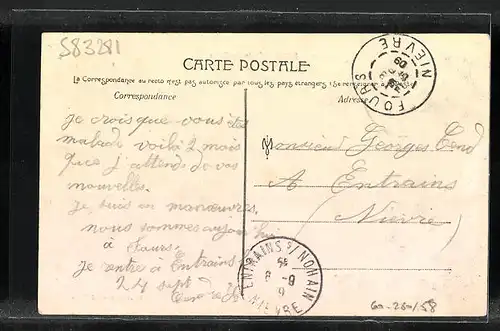 S83281
CARTE POSTALE
La Correspondance au recto n'est pas autorisée par tous les pays étrangers (Se renseigner à la Poste)
Correspondance
Adresse
FOURS
NIEVRE
09
je crois que vous êtes
malade voilà 2 mois
que j'attends de vos
nouvelles.
Je suis en manœuvres,
nous sommes aujourd'hui
à Fours.
je rentre à Entrains
24 sept
Monsieur Georges
A Entrains
(Nièvre)
ENTRAINS S/ NOHAIN
NIEVRE